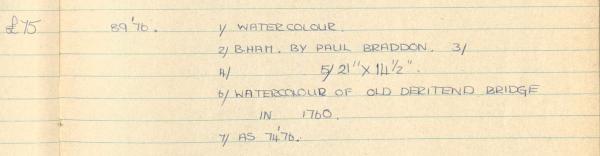 £75 89'76. 1/ WATERCOLOUR.
2/ B.HAM. BY PAUL BRADDON. 3/
4/ 5/ 21" X 14½".
6/ WATERCOLOUR OF OLD DERITEND BRIDGE
IN 1760.
7/ AS 74'76.